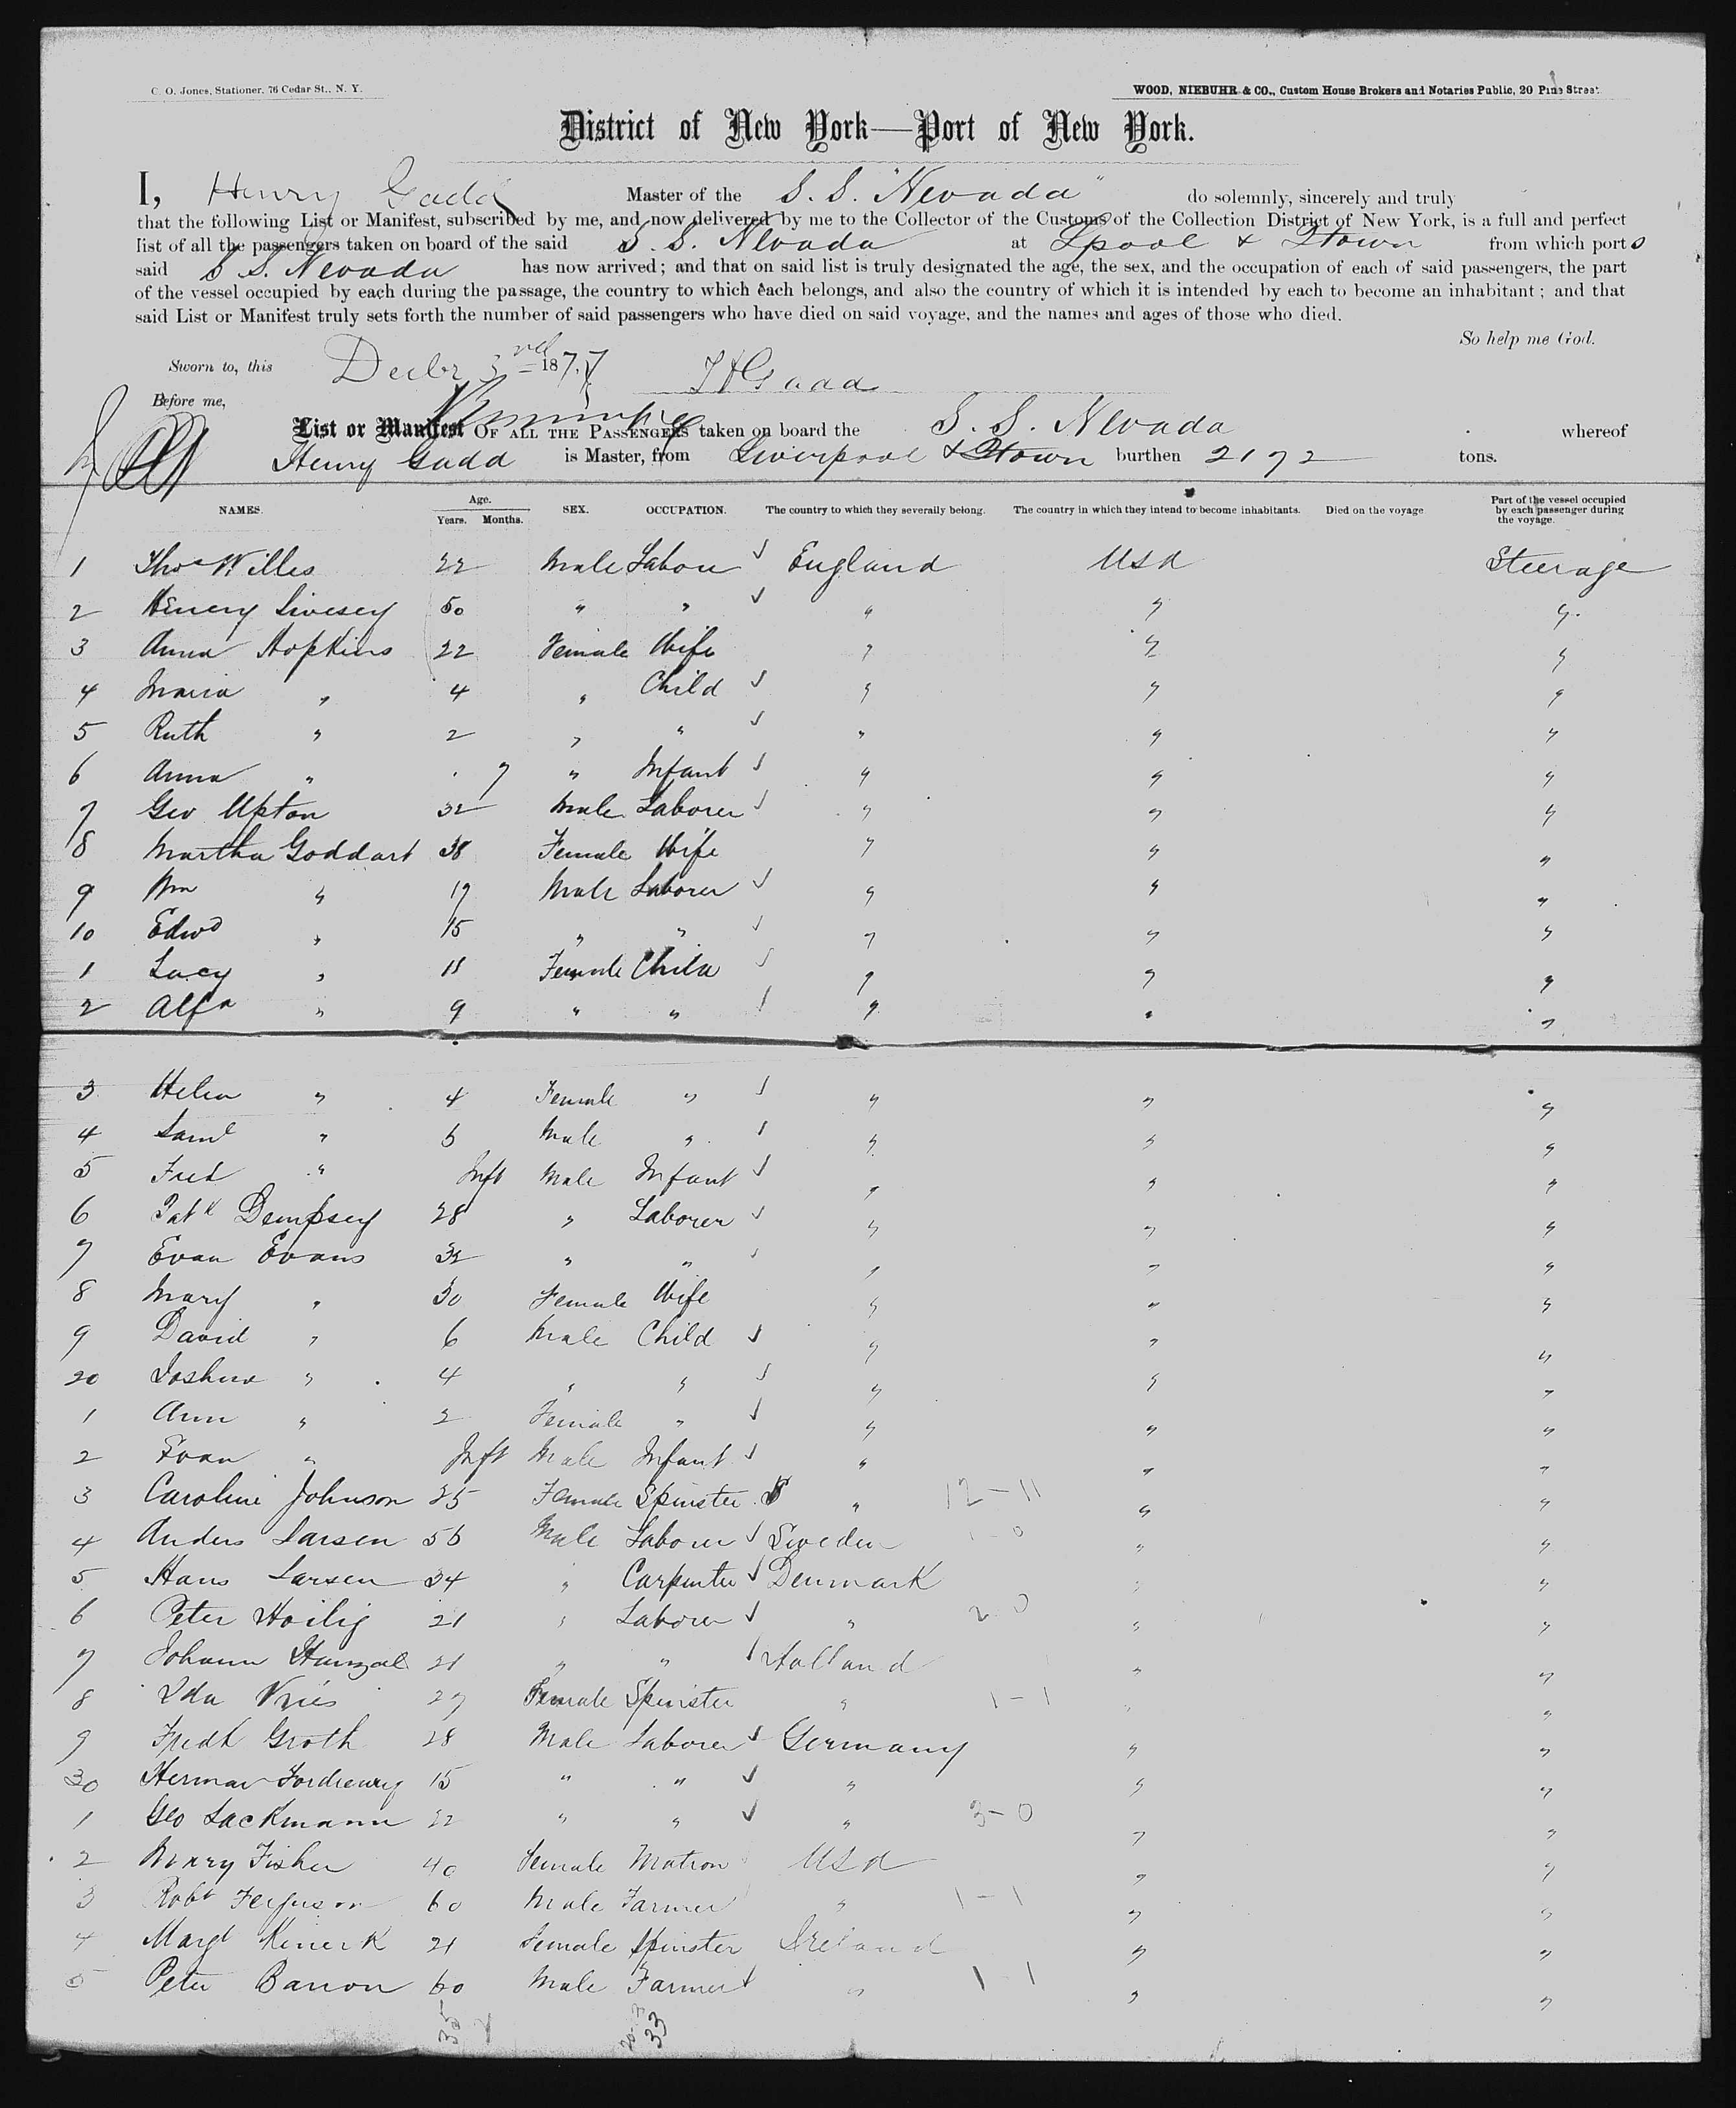 C. O. Jones, Stationer, 76 Cedar St., N. Y.
WOOD, NIEBUHR & CO., Custom House Brokers and Notaries Public, 20 Pine Street.
District of New York—Port of New York.
I, Henry Gadd Master of the S. S. "Nevada" do solemnly, sincerely and truly
that the following List or Manifest, subscribed by me, and now delivered by me to the Collector of the Customs of the Collection District of New York, is a full and perfect
list of all the passengers taken on board of the said S. S. Nevada at Lpool & Qtown from which ports
said S S. Nevada has now arrived; and that on said list is truly designated the age, the sex, and the occupation of each of said passengers, the part
of the vessel occupied by each during the passage, the country to which each belongs, and also the country of which it is intended by each to become an inhabitant; and that
said List or Manifest truly sets forth the number of said passengers who have died on said voyage, and the names and ages of those who died.
So help me God.
Sworn to, this Decbr 3rd 1877 H Gadd
Before me,
List or Manifest OF ALL THE PASSENGERS taken on board the S. S. Nevada whereof
Henry Gadd is Master, from Liverpool & Qtown burthen 2172 tons.
NAMES. Age. Years. Months. SEX. OCCUPATION. The country to which they severally belong. The country in which they intend to become inhabitants. Died on the voyage Part of the vessel occupied by each passenger during the voyage.
1 Thos Willes 22 Male Labore England Usa Steerage
2 Henery Livesey 50 " " " " "
3 Anna Hopkins 22 Female Wife " " "
4 Maria " 4 " Child " " "
5 Ruth " 2 " " " " "
6 Anna " 7 " Infant " " "
7 Geo Upton 32 Male Laborer " " "
8 Martha Goddart 38 Female Wife " " "
9 Wm " 17 Male Laborer " " "
10 Edwd " 15 " " " " "
1 Lucy " 11 Female Child " " "
2 Alfd " 9 " " " " "
3 Helen " 4 Female " " " "
4 Saml " 6 Male " " " "
5 Fred " Inft Male Infant " " "
6 Patk Dempsey 28 " Laborer " " "
7 Evan Evans 32 " " " " "
8 Mary " 30 Female Wife " " "
9 David " 6 Male Child " " "
20 Joshua " 4 " " " " "
1 Ann " 2 Female " " " "
2 Evan " Inft Male Infant " " "
3 Caroline Johnson 25 Female Spinster " 12-11 " "
4 Anders Larsen 56 Male Laborer Sweden 1-0 " "
5 Hans Larsen 34 " Carpenter Denmark " "
6 Peter Hoilig 21 " Laborer " 2 0 " "
7 Johann 21 " " Holland " "
8 Ida Vries 27 Female Spinster " 1-1 " "
9 Fredk Groth 28 Male Laborer Germany " "
30 Herman 15 " " " " "
1 Geo Lackmann 22 " " " 3-0 " "
2 Mary Fisher 40 Female Matron Usa " "
3 Robt Ferguson 60 Male Farmer " 1-1 " "
4 Margt Kinerk 21 Female Spinster Ireland " "
5 Peter Barron 60 Male Farmer " 1 1 " "
35
33